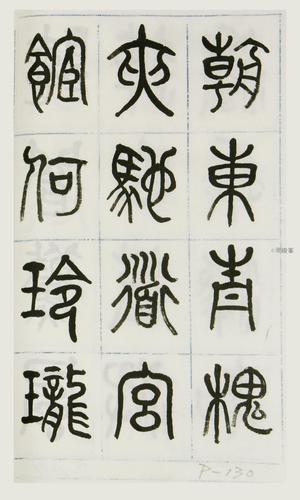 朝東青槐
夾馳道宮
館何玲瓏
P-130